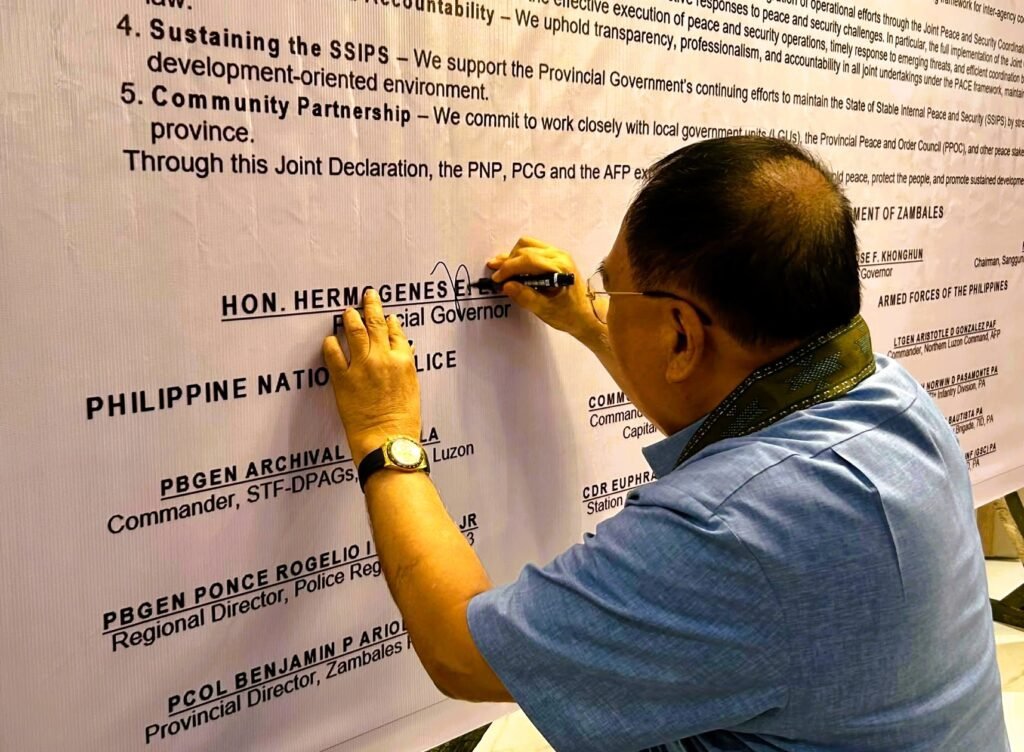 law.
Accountability – We uphold transparency, professionalism, and accountability in all joint undertakings under the PACE framework,
effective execution of peace and security operations, timely response to emerging threats, and efficient coordination
responses to peace and security challenges. In particular, the full implementation of the Joint
of operational efforts through the Joint Peace and Security
framework for inter-agency
4. Sustaining the SSIPS – We support the Provincial Government's continuing efforts to maintain the State of Stable Internal Peace and Security (SSIPS) by
development-oriented environment.
5. Community Partnership – We commit to work closely with local government units (LGUs), the Provincial Peace and Order Council (PPOC), and other peace
province.
Through this Joint Declaration, the PNP, PCG and the AFP peace, protect the people, and promote sustained
MENT OF ZAMBALES
HON. HERMOGENES E.
Provincial Governor
SE F. KHONGHUN
Governor
Chairman,
PHILIPPINE NATIO LICE
ARMED FORCES OF THE PHILIPPINES
PBGEN ARCHIVAL LA
Commander, STF-DPAGs, Luzon
LTGEN ARISTOTLE D GONZALEZ PAF
Commander, Northern Luzon Command, AFP
PBGEN PONCE ROGELIO I JR
Regional Director, Police Reg 3
NORWIN D PASAMONTE PA
Infantry Division, PA
BAUTISTA PA
Brigade, 7ID, PA
PCOL BENJAMIN P ARIO
Provincial Director, Zambales
COMM
Command
Capital
CDR EUPHRA
Station
INF (GSC) PA
PA